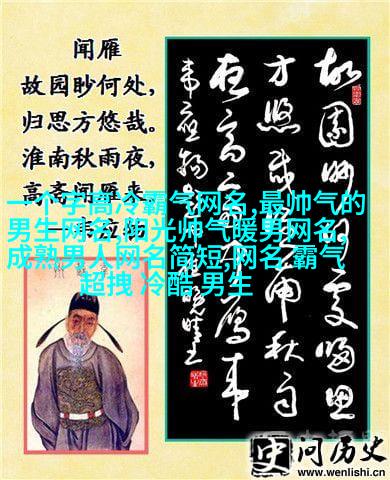 闻雁
故园眇何处,
归思方悠哉。
淮南秋雨夜,
高斋闻雁来。
韦应物
一个字高冷霸气网名,最帅气的
男生网名,阳光帅气暖男网名,
成熟男人网名简短,网名 霸气
超拽 冷酷 男生
故園眇何處歸思
方悠哉淮南秋雨
夜高齋聞雁來
问历史
www.wenlishi.cn